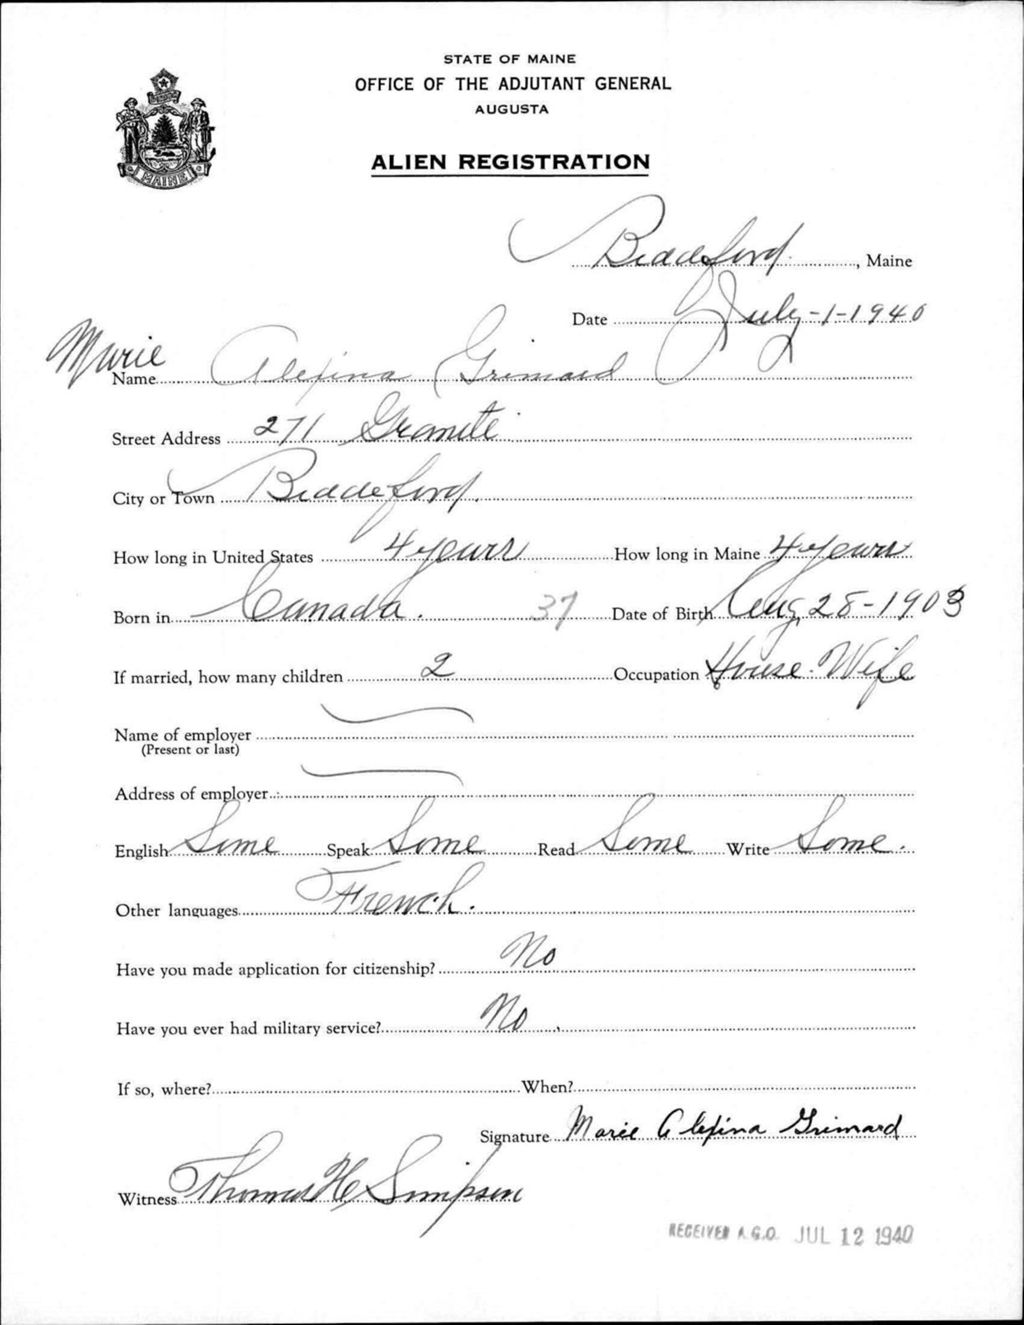 STATE OF MAINE
OFFICE OF THE ADJUTANT GENERAL
AUGUSTA
MAINE
ALIEN REGISTRATION
Biddeford, Maine
Date July-1-1940
Name Marie Alefina Grimard
Street Address 271 Granite
City or Town Biddeford.
How long in United States 4 years How long in Maine 4 years
Born in Canada. 37 Date of Birth Aug, 28-1903
If married, how many children 2 Occupation House-Wife
Name of employer
(Present or last)
Address of employer
English Some Speak Some Read Some Write Some.
Other languages French.
Have you made application for citizenship? No
Have you ever had military service? No.
If so, where? When?
Signature Marie Alefina Grimard
Witness Thomas H Simpson
RECEIVED A.G.O. JUL 12 1940